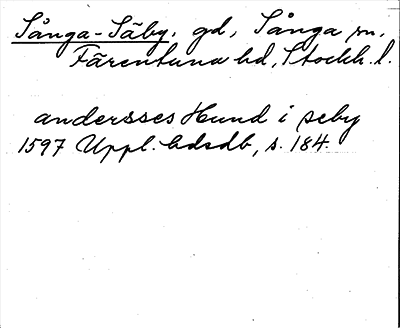 Sånga-Säby. gd, Sånga sn,
Färentuna hd, Stockh. l.
andersses Hund i seby
1597 Uppl. hdsdb, s. 184.